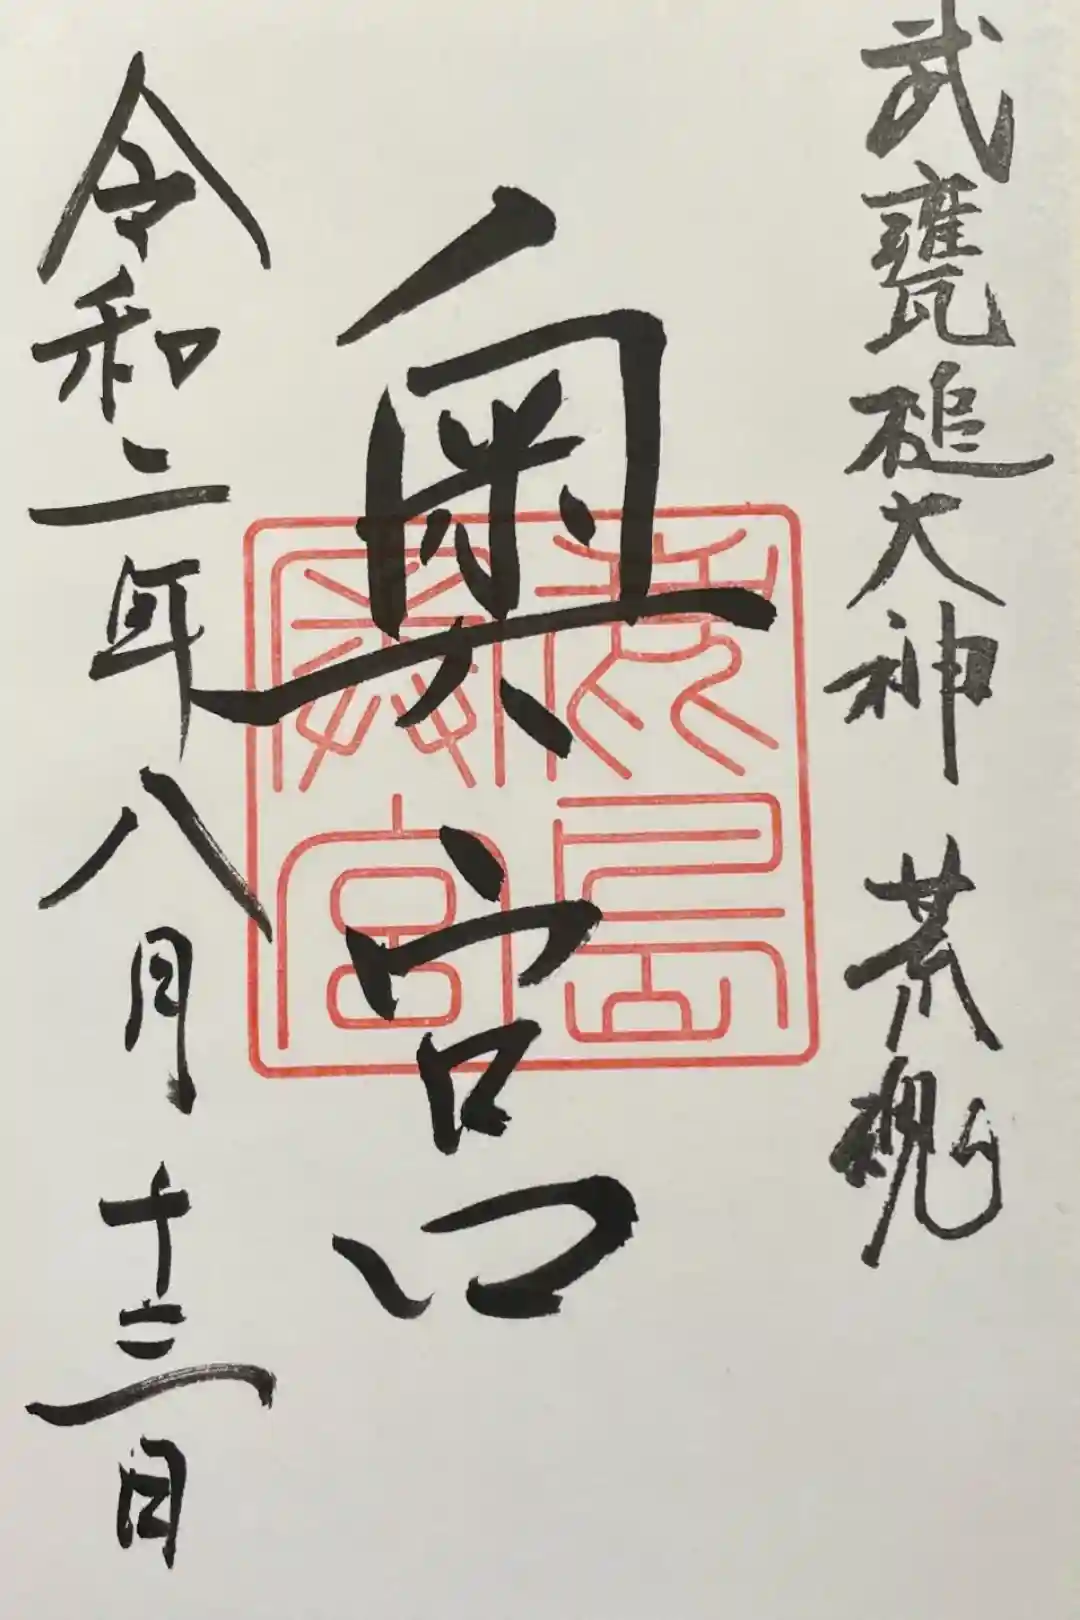 武甕槌大神 荒魂
奥宮
令和二年八月十三日
鹿島
奥宮